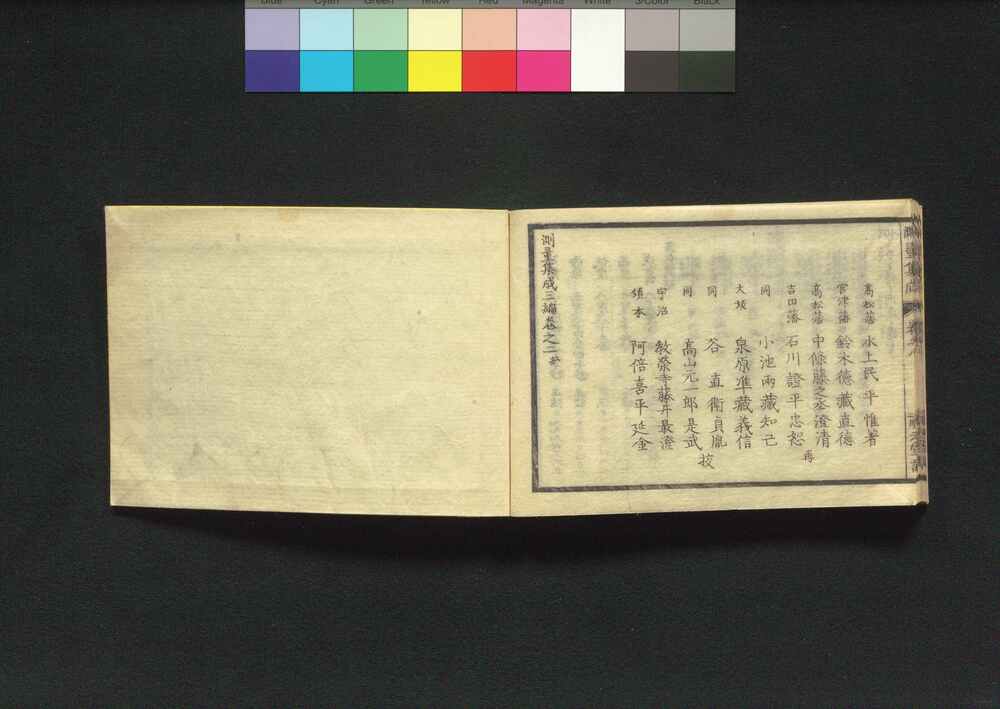 Blue Cyan Green Yellow Red Magenta White 3/Color Black
高松藩 水土民平惟著
宮津藩 鈴木德藏直德
高松藩 中條藤之丞澄清
吉田藩 石川證平忠恕 再
同 小池兩藏知己
大坂 泉原準藏義信
同 谷直衞貞胤 挍
同 高山元一郎是武
宇治 敎榮寺藤井最澄
鎮本 阿倍喜平延金
測量集成三編卷之二終